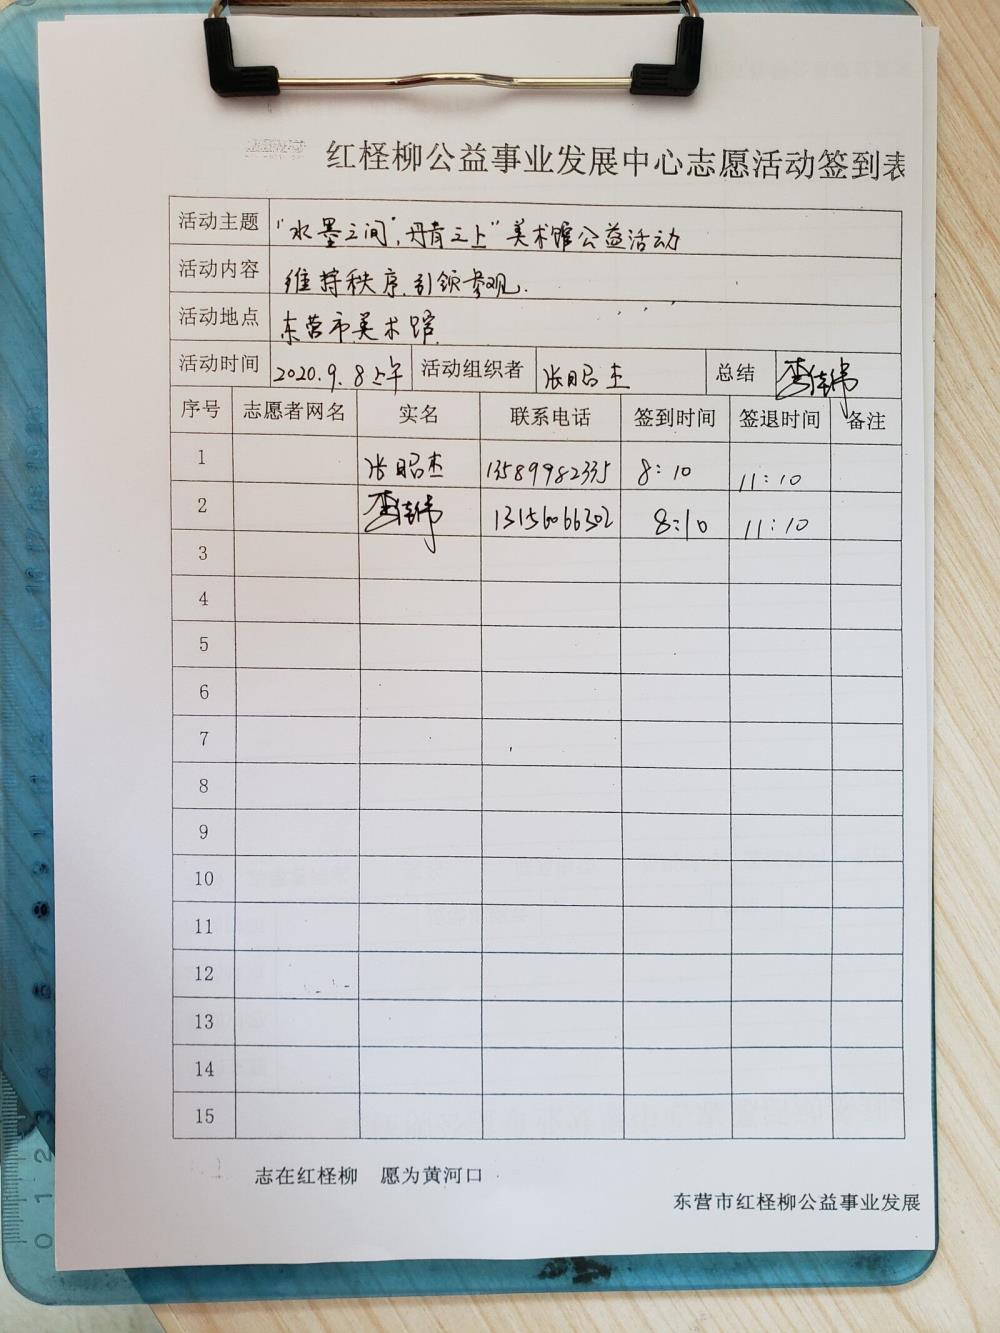 红柽柳公益事业发展中心志愿活动签到表
活动主题 "水墨之间",丹青之上"美术馆公益活动
活动内容 维持秩序.引领参观.
活动地点 东营市美术馆.
活动时间 2020.9.8上午 活动组织者 张昭杰 总结
序号 志愿者网名 实名 联系电话 签到时间 签退时间 备注
1 张昭杰 13589982335 8:10 11:10
2 13156066302 8:10 11:10
3
4
5
6
7
8
9
10
11
12
13
14
15
志在红柽柳 愿为黄河口
东营市红柽柳公益事业发展